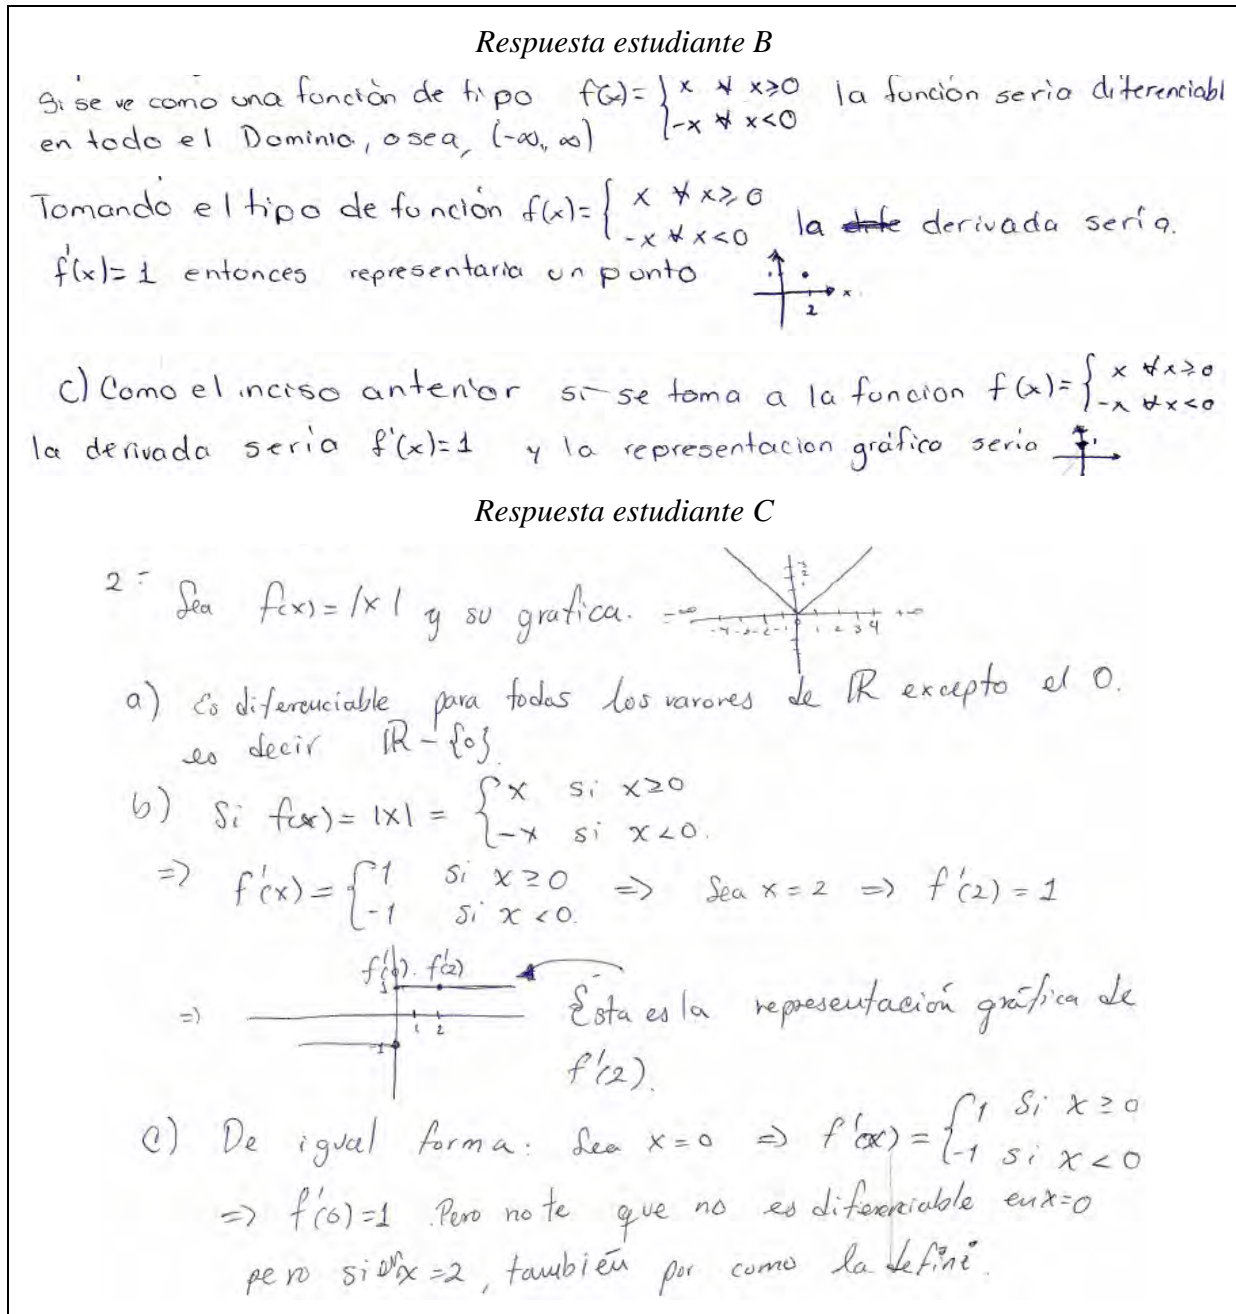 Respuesta estudiante B
Si se ve como una función de tipo f(x)= { x ∀ x≥0 la función sería diferenciabl
-x ∀ x<0
en todo el Dominio, osea, (-∞, ∞)
Tomando el tipo de función f(x)= { x ∀ x≥0 la derivada sería.
-x ∀ x<0
f'(x)= 1 entonces representaria un punto
x
2
c) Como el inciso anterior si se toma a la funcion f(x)= { x ∀x≥0
-x ∀x<0
la derivada sería f'(x)=1 y la representacion gráfico sería
Respuesta estudiante C
2- Sea f(x) = |x| y su grafica.
-∞ -4 -3 -2 -1 0 1 2 3 4 +∞
a) es diferenciable para todos los varores de ℝ excepto el 0.
es decir ℝ - {0}
b) Si f(x) = |x| = { x si x≥0
-x si x<0.
=> f'(x) = { 1 si x≥0 => Sea x = 2 => f'(2) = 1
-1 si x<0.
f'(0). f'(2)
1
=> 1 2 Esta es la representación gráfica de
-1
f'(2).
c) De igual forma: Sea x=0 => f'(x) = { 1 Si x≥0
-1 si x<0
=> f'(0)=1. Pero note que no es diferenciable en x=0
pero si en x=2, también por como la definí.